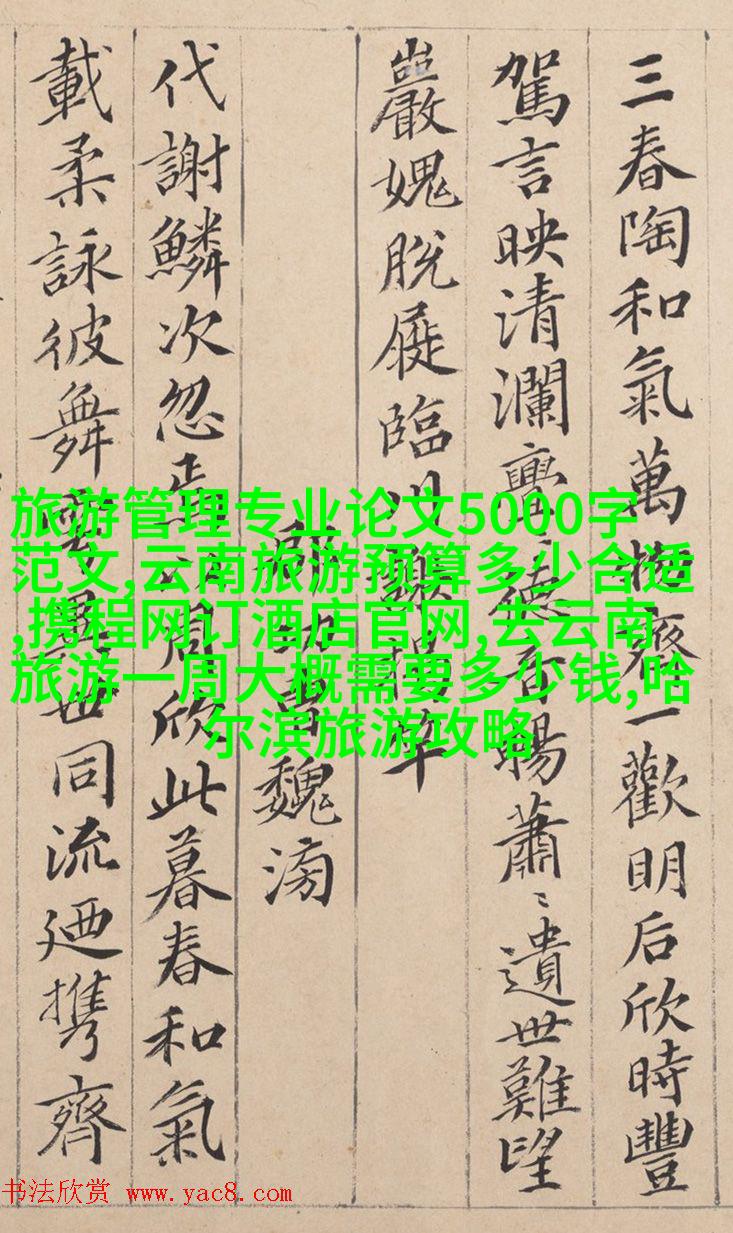 三春陶和氣萬物齊一歡明后欣時豐
駕言映清瀾亹〻德音暢蕭〻遺世難望
巖愧脫屣臨川謝揭竿
郎功曹魏滂
代謝鱗次忽焉以周欣此暮春和氣
載柔詠彼舞雩異世同流廼攜齊
旅游管理专业论文5000字
范文,云南旅游预算多少合适
,携程网订酒店官网,去云南
旅游一周大概需要多少钱,哈
尔滨旅游攻略
书法欣赏 www.yac8.com